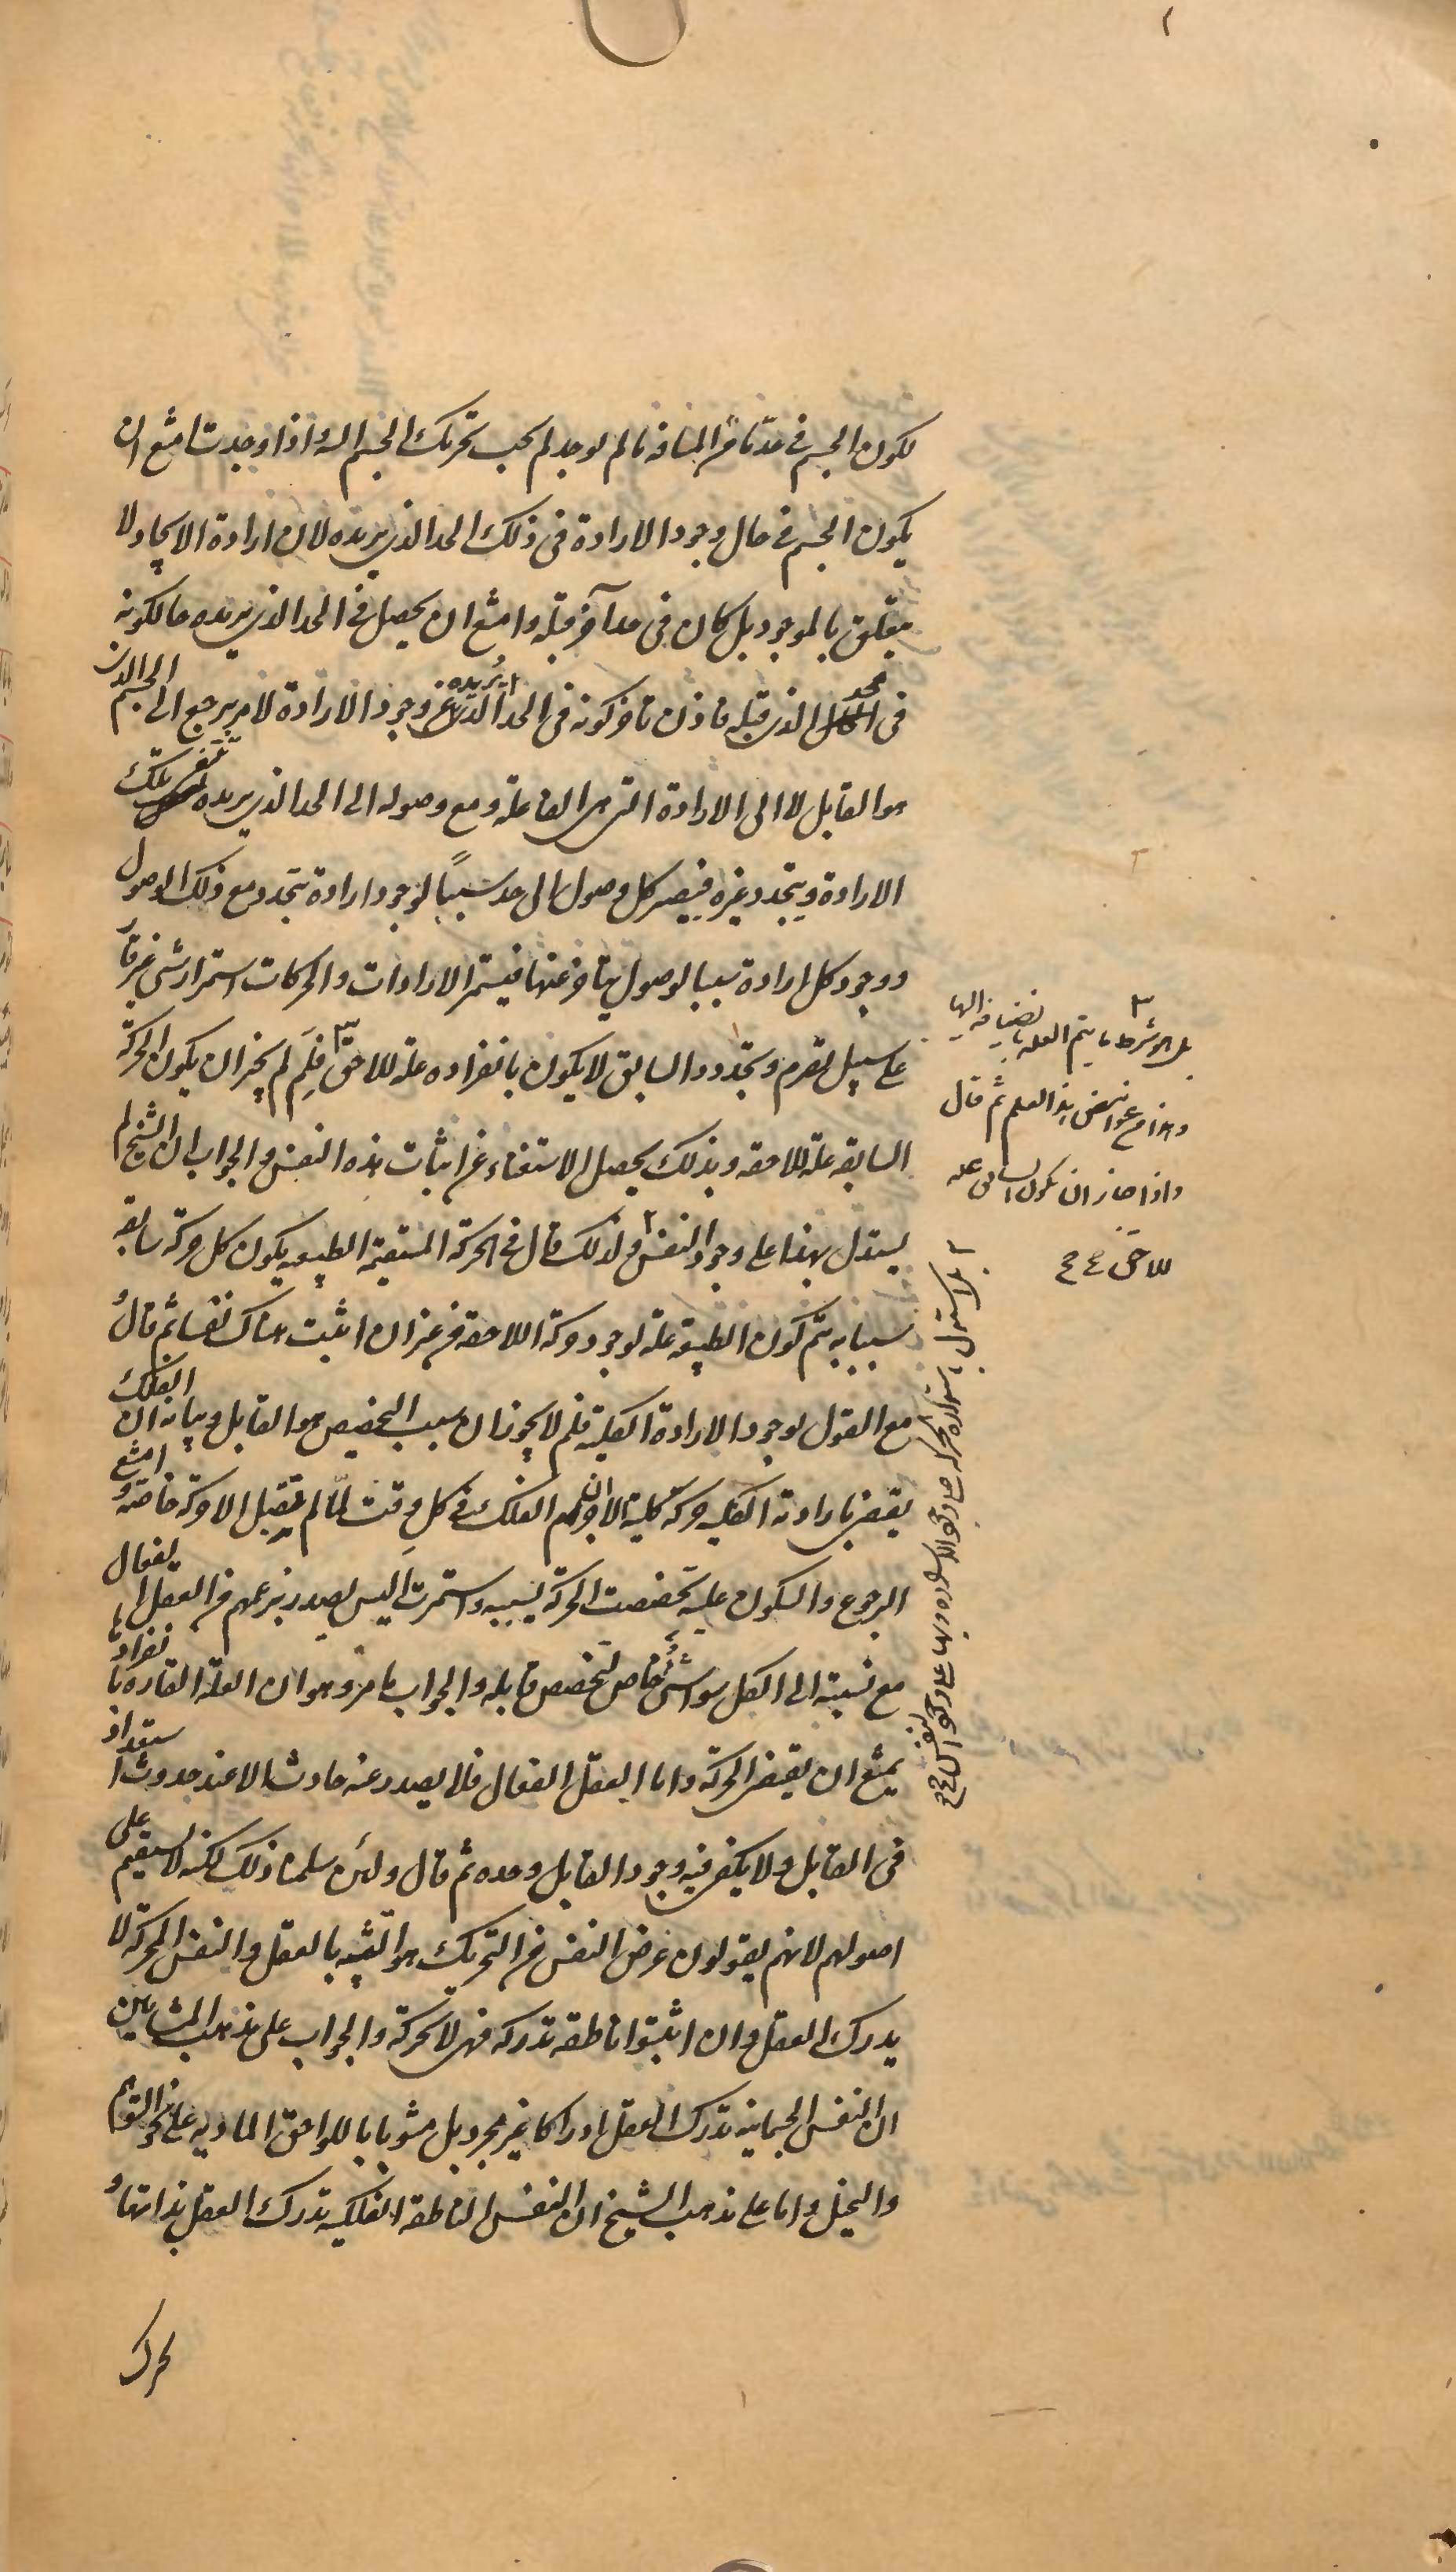 لكون الجسم فى حد ما من المسافة ما لم توجد لم يجب تحريك الجسم اليه و اذا وجدت امتنع ان
يكون الجسم فى حال وجود الارادة فى ذلك الحد الذى يريده لان ارادة الايجاد لا
يتعلق بالموجود بل كان فى حد آخر قبله و امتنع ان يحصل فى الحد الذى يريده حال كونه
فى الحد الذى قبله فاذن تأخر كونه فى الحد الذى يريده عن وجود الارادة لامر يرجع الى الجسم الذى
هو القابل لا الى الارادة التى هى الفاعلة و مع وصوله الى الحد الذى يريده تفنى تلك
الارادة و يتجدد غيره فيصير كل وصول الى حد سببًا لوجود ارادة تتجدد مع ذلك الوصول
و وجود كل ارادة سببا لوصول يتأخر عنها فيستمر الارادات و الحركات استمرار شى غير قار
على سبيل تصرم و تجدد و السابق لا يكون بانفراده علة للاحق ٣ فلِمَ لم يجز ان يكون الحركة
السابقه علة للاحقه و بذلك يحصل الاستغناء عن اثبات هذه النفس و الجواب ان الشيخ لم
يستدل بهذا على وجود النفس ٢ و لذلك قال فى الحركة المستقيمة الطبيعيه يكون كل حركة سابقه
سببا به يتم كون الطبيعة علة لوجود حركة اللاحقه من غير ان اثبت هناك نفسا ثم قال و
مع القول بوجود الارادة الكلية فلم لا يجوز ان سبب التخصيص هو القابل و بيانه ان الفلك
يقتضى بارادته الكليه حركة كلية الا ان جرم الفلك فى كل وقت لمّا لم يقبل الا حركة خاصه و امتنع
الرجوع و السكون عليه تخصصت الحركة بسببه و استمرت اليس يصدر بزعمهم من العقل الفعال
مع نسبته الى الكل سواء شئ خاص لتخصص قابله و الجواب ما مر و هو ان العلة القاره بانفرادها
يمتنع ان يقتضى الحركة و اما العقل الفعال فلا يصدر عنه حادث الا عند حدوث استعداد
فى القابل و لا يكفى فيه وجود القابل وحده ثم قال و لئن سلمنا ذلك لكنه لا يستقيم على
اصولهم لانهم يقولون غرض النفس من التحريك هو التشبه بالعقل و النفس المحركة لا
يدرك العقل و ان اثبتوا ناطقه تدركه فهى لا تحركه و الجواب على مذهب المشائين
ان النفس الجسمانية تدرك العقل ادراكا غير مجرد بل مشوبا باللواحق الماديه على نحو التوهم
و التخيل و اما على مذهب الشيخ ان النفس الناطقه الفلكيه تدرك العقل بذاتها و
تحرك
٣ بل هو شرط ما يتم العلة بانضيافه اليها
و هذا من غوامض هذا العلم ثم قال
و اذا جاز ان يكون السابق علة
للاحق
٢ بل استدل باستدارة الحركة على وجود الارادة و بها على وجود النفس